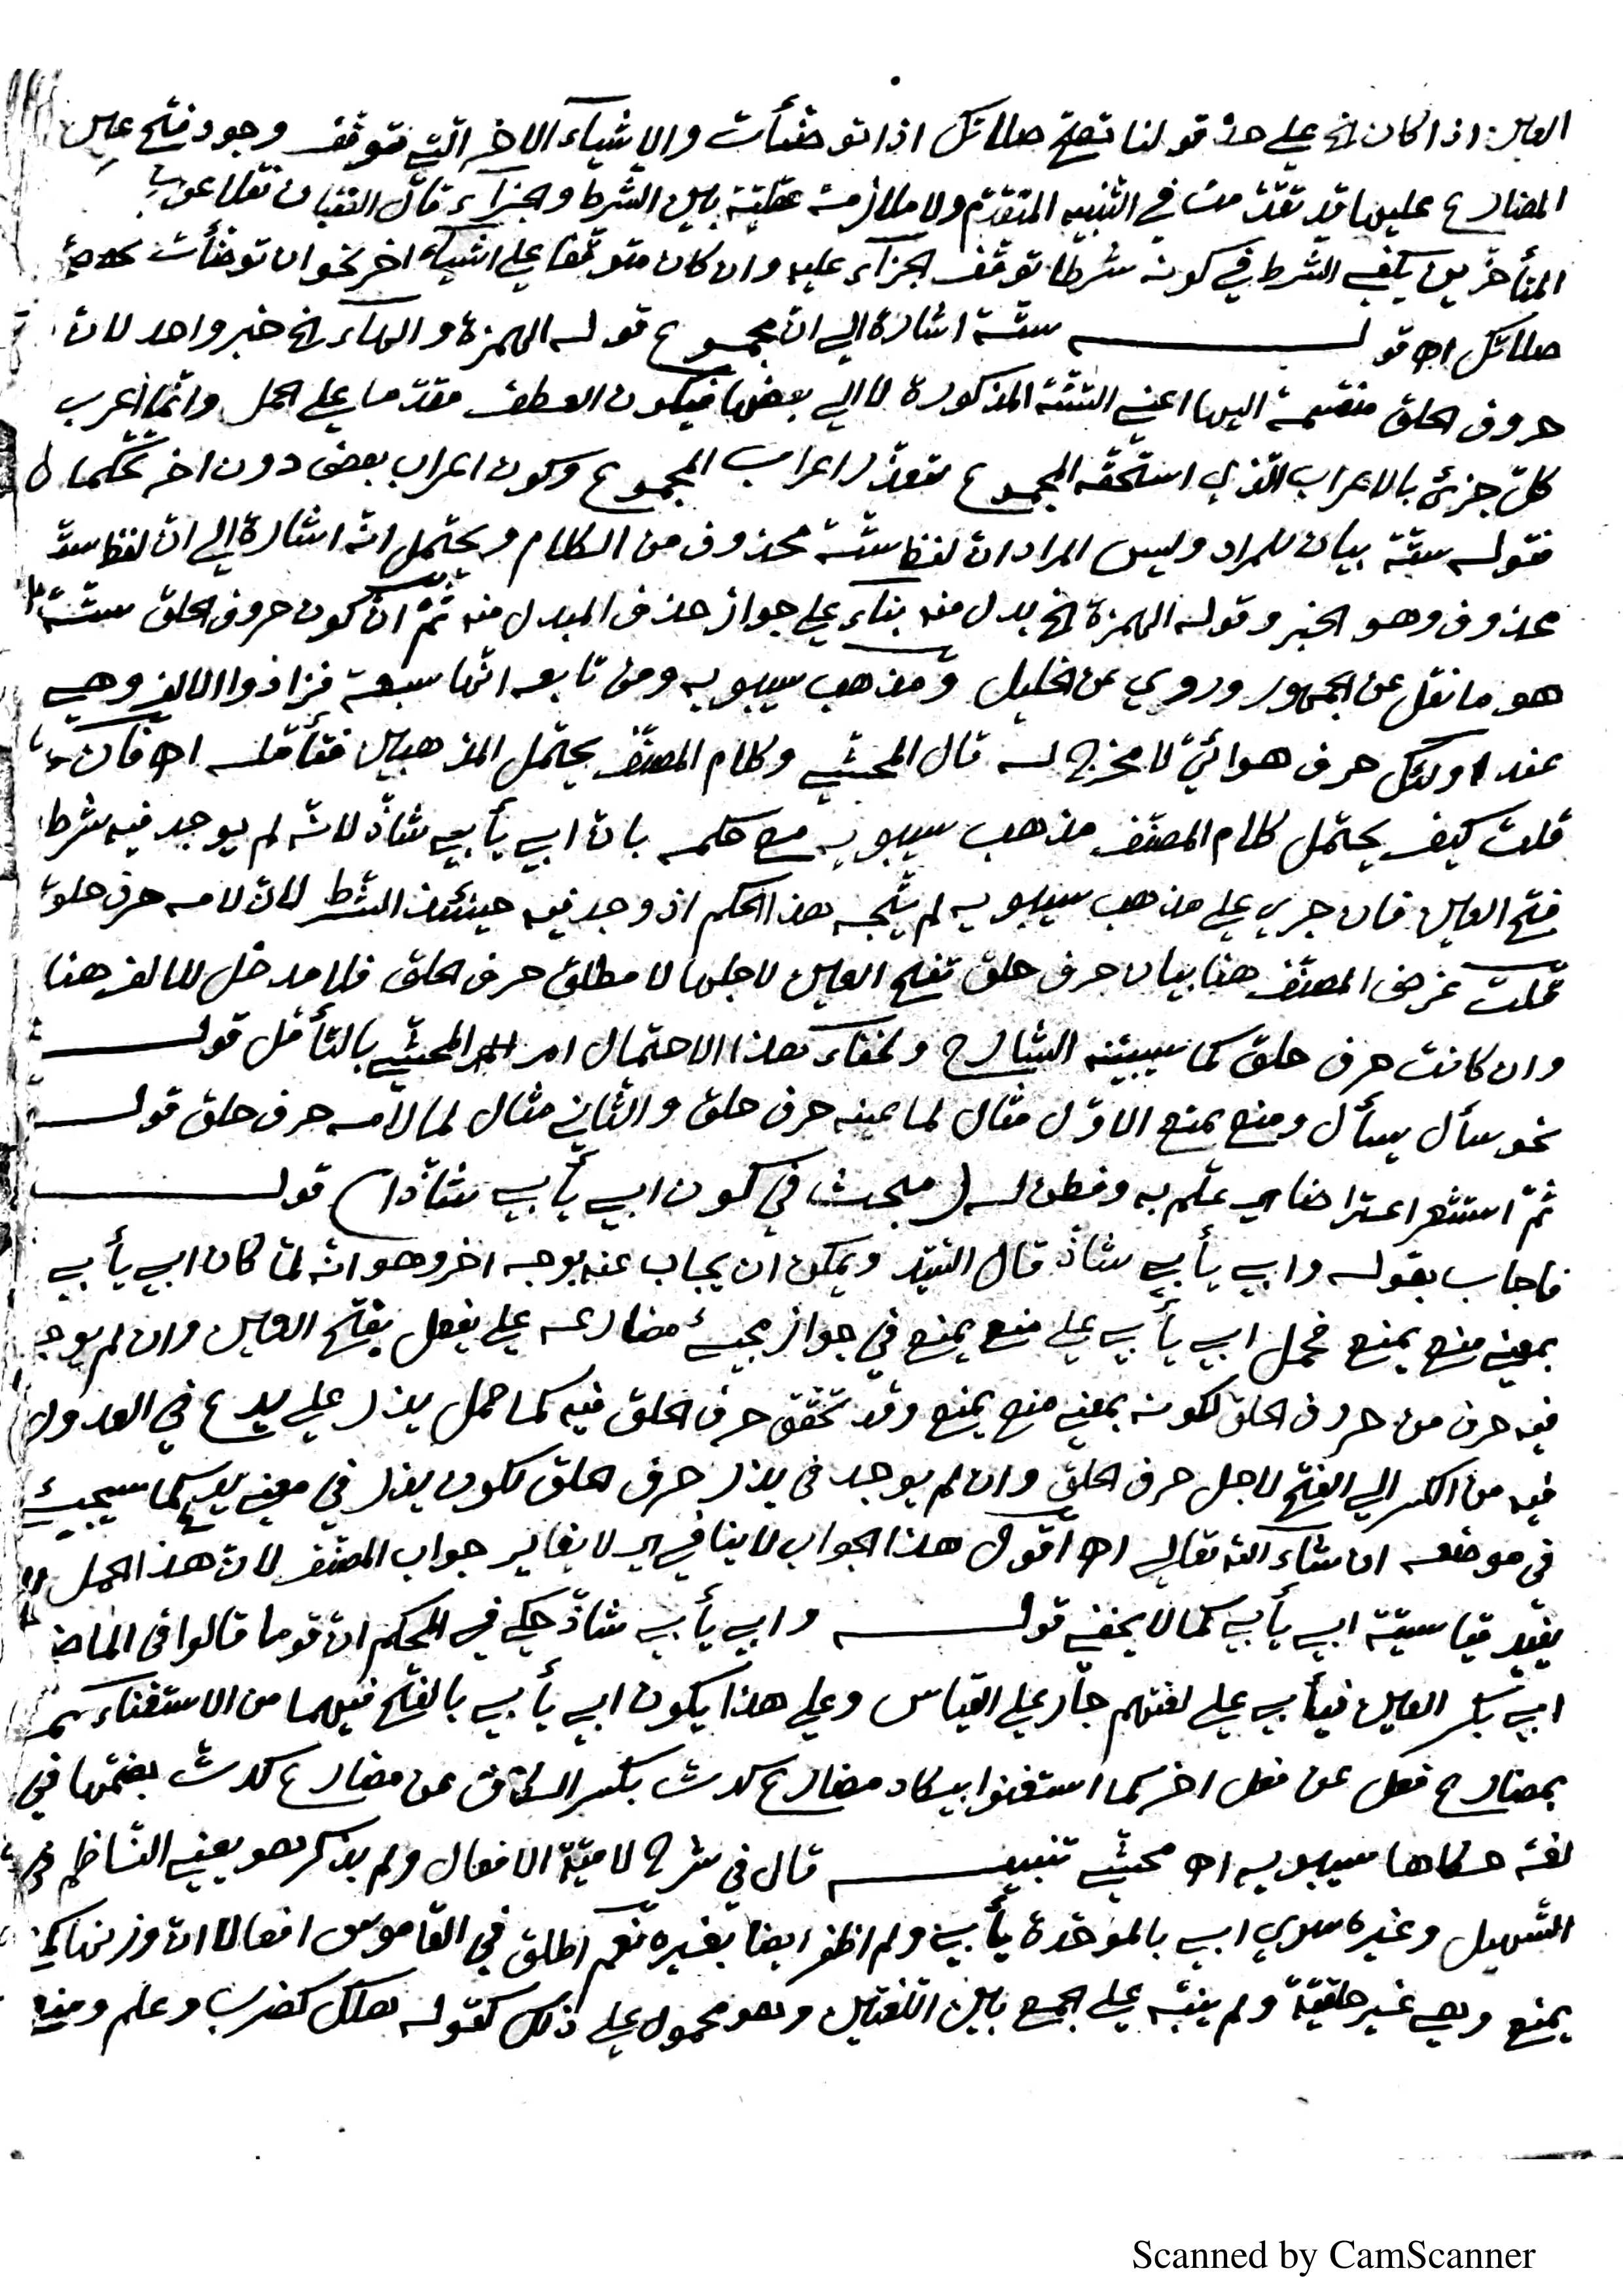 العين اذا كان الخ على حدّ قولنا تصحّ صلاتك اذا توضّأت والاشياء الاخر التي توقّف وجود فتح عين
المضارع عليها قد تقدّمت في التنبيه المتقدّم ولا ملازمة عقليّة بين الشرط والجزاء قال اللقاني نقلا عن بعض
المتأخّرين يكفي الشرط في كونه شرطا توقّف الجزاء عليه وان كان متوقّفا على اشياء اخر نحو ان توضّأت صحّت
صلاتك اھ قولــه ستّة اشارة الى انّ مجموع قوله الهمزة والهاء الخ خبر واحد لانّ
حروف الحلق منقسمة اليها اعني الستّة المذكورة لا الى بعضها فيكون العطف مقدّما على الحمل وانّما اعرب
كلّ جزئ بالاعراب الّذي استحقّه المجموع لتعذّر اعراب المجموع وكون اعراب بعض دون اخر تحكّما
فقوله ستّة بيان للمراد وليس المراد انّ لفظ ستّة محذوف من الكلام ويحتمل انّه اشارة الى انّ لفظ ستّة
محذوف وهو الخبر وقوله الهمزة الخ بدل منه بناء على جواز حذف المبدل منه ثمّ انّ كون حروف الحلق ستّة
هو ما نقل عن الجمهور وروي عن الخليل ومذهب سيبويه ومن تابعه انّها سبعة فزادوا الالف وهي
عند اولئك حرف هوائيّ لا مخرج له قال المحشّي وكلام المصنّف يحتمل المذهبين فتأمّله اھ فان
قلت كيف يحتمل كلام المصنّف مذهب سيبويه مع حكمه بانّ ابي يأبي شاذّ لانّه لم يوجد فيه شرط
فتح العين فان جري على مذهب سيبويه لم يتّجه هذا الحكم اذ وجد فيه حينئذ الشرط لانّ لامه حرف حلق
قلت غرض المصنّف هنا بيان حرف حلق تفتح العين لاجلها لا مطلق حرف الحلق فلا مدخل للالف هنا
وان كانت حرف حلق كما سيبيّنه الشارح ولخفاء هذا الاحتمال امر المحشّي بالتّأمّل قولــه
نحو سأل يسأل ومنع يمنع الاوّل مثال لما عينه حرف حلق والثاني مثال لما لامه حرف حلق قولــه
ثمّ استشعر اعتراضا اي علم به وفطن له (مبحث في كون ابي يأبي شاذّا) قولــه
فاجاب بقوله وابي يأبي شاذّ قال السّيّد ويمكن ان يجاب عنه بوجه اخر وهو انّه لمّا كان ابي يأبي
بمعني منع يمنع فحمل ابي يأبي على منع يمنع في جواز مجيئ مضارعه على يفعل بفتح العين وان لم يوجد
فيه حرف من حروف الحلق لكونه بمعني منع يمنع وقد تحقّق حرف الحلق فيه كما حمل يذر على يدع في العدول
فيه من الكسر الى الفتح لاجل حرف الحلق وان لم يوجد في يذر حرف الحلق لكون يذر في معني يدع كما سيجيئ
في موضعه ان شاء الله تعالى اھ اقول هذا الجواب لا ينافي اي لا يغاير جواب المصنّف لانّ هذا الحمل لا
يفيد قياسيّة ابي يأبي كما لا يخفي قولــه وابي يأبي شاذّ حكي في المحكم انّ قوما قالوا في الماضي
ابي بكسر العين فيأبي على لغتهم جار على القياس وعلى هذا يكون ابي يأبي بالفتح فيهما من الاستغناء
بمضارع فعل عن فعل اخر كما استغنوا بيكاد مضارع كدت بكسر الكاف عن مضارع كدت بضمّها في
لغة حكاها سيبويه اھ محشّي تنبيــه قال في شرح لاميّة الافعال ولم يذكر هو يعني النّاظم في
التّسهيل وغيره سوي ابي بالموحّدة يأبي ولم اظفر ايضا بغيره نعم اطلق في القاموس افعالا انّ وزنها كمنع
يمنع وهي غير حلقيّة ولم ينبّه على الجمع بين اللّغتين وهو محمول على ذلك كقوله هلك كضرب وعلم ومنع
Scanned by CamScanner